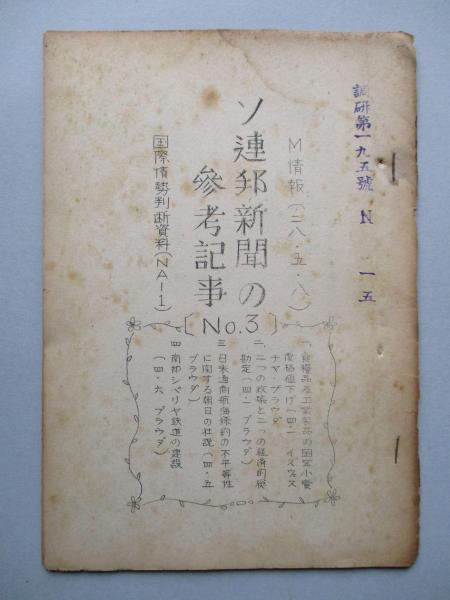 調研第一九五號 N 一五
M情報(二八・五・八)
ソ連邦新聞の
參考記事
[No.3]
国際情勢判断資料(NA-1)
一、食糧品及工業製品の国定小賣
価格値下げ(四・一 イズヴェス
チヤ・プラウダ
二、二つの政策と二つの経済的総
勘定(四・一 プラウダ)
三 日米通商航海條約の不平等性
に関する朝日の社説(四・五
プラウダ)
四 南部シベリヤ鉄道の建設
(四・六 プラウダ)